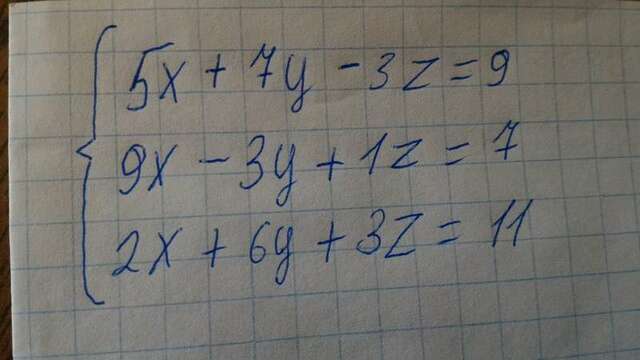 5x + 7y - 3z = 9
9x - 3y + 1z = 7
2x + 6y + 3z = 11